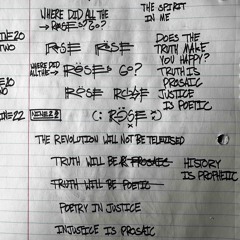 WHERE DID ALL THE
→ ROSES GO?
THE SPIRIT
IN ME
ROSE ROSE
DOES THE
TRUTH MAKE
YOU HAPPY?
WHERE DID
ALL THE → ROSES GO?
TRUTH IS
PROSAIC
JUSTICE
IS POETIC
ROSE
NINE22
(: RÖSE :)
THE REVOLUTION WILL NOT BE TELEVISED
TRUTH WILL BE PROSAIC
HISTORY
IS PROPHETIC
TRUTH WILL BE POETIC
POETRY IN JUSTICE
INJUSTICE IS PROSAIC